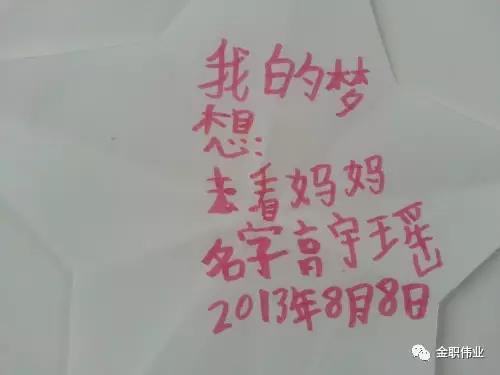 我的梦
想:
去看妈妈
名字高宇瑶
2013年8月8日
金职伟业